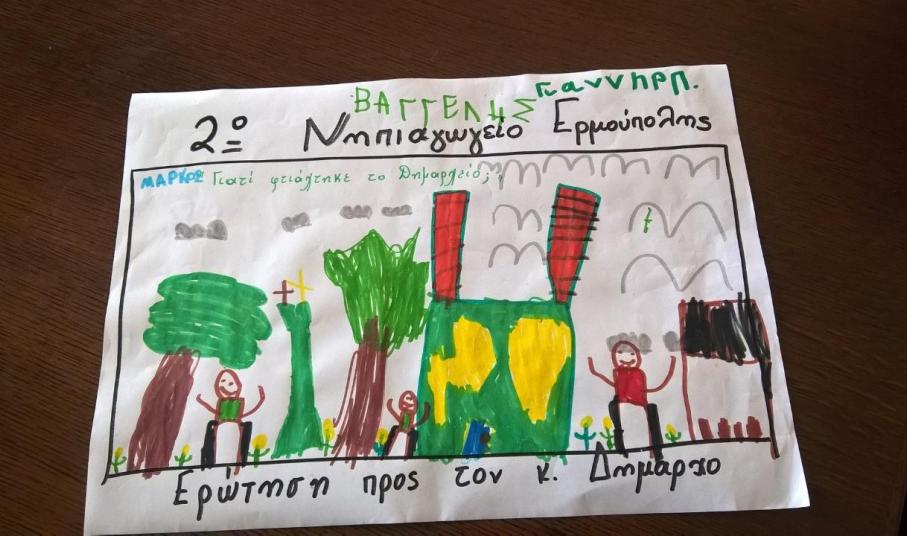 ΒΑΓΓΕΛΗΣ Γιαννηρη.
2º Νηπιαγωγείο Ερμούπολης
ΜΑΡΚΟΣ Γιατί φτιάχτηκε το Δημαρχείο;
Ερώτηση προς τον κ. Δημάρχο